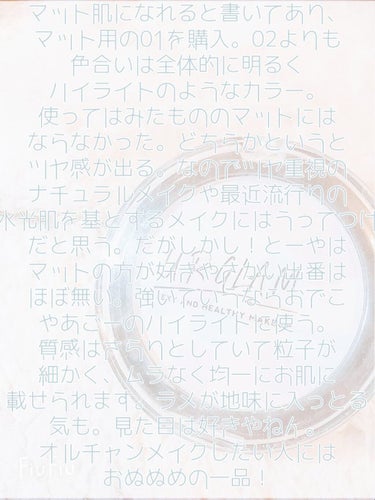 マット肌になれると書いてあり、
マット用の01を購入。02よりも
色合いは全体的に明るく
ハイライトのようなカラー。
使ってはみたもののマットには
ならなかった。どちらかというと
ツヤ感が出る。なのでツヤ重視の
ナチュラルメイクや最近流行りの
水光肌を基とするメイクにはうってつけ
だと思う。だがしかし！とーやは
マットの方が好きやけん出番は
ほぼ無い。強いていうならおでこ
やあごーのハイライトで使う。
質感はさらりとしていて粒子が
細かく、ムラなく均一にお肌に
載せられます。ラメが地味に入っとる
気も。見た目は好きやねん。
オルチャンメイクしたい人には
おぬぬめの一品！
GLAM
AND HEALTHY MAKE